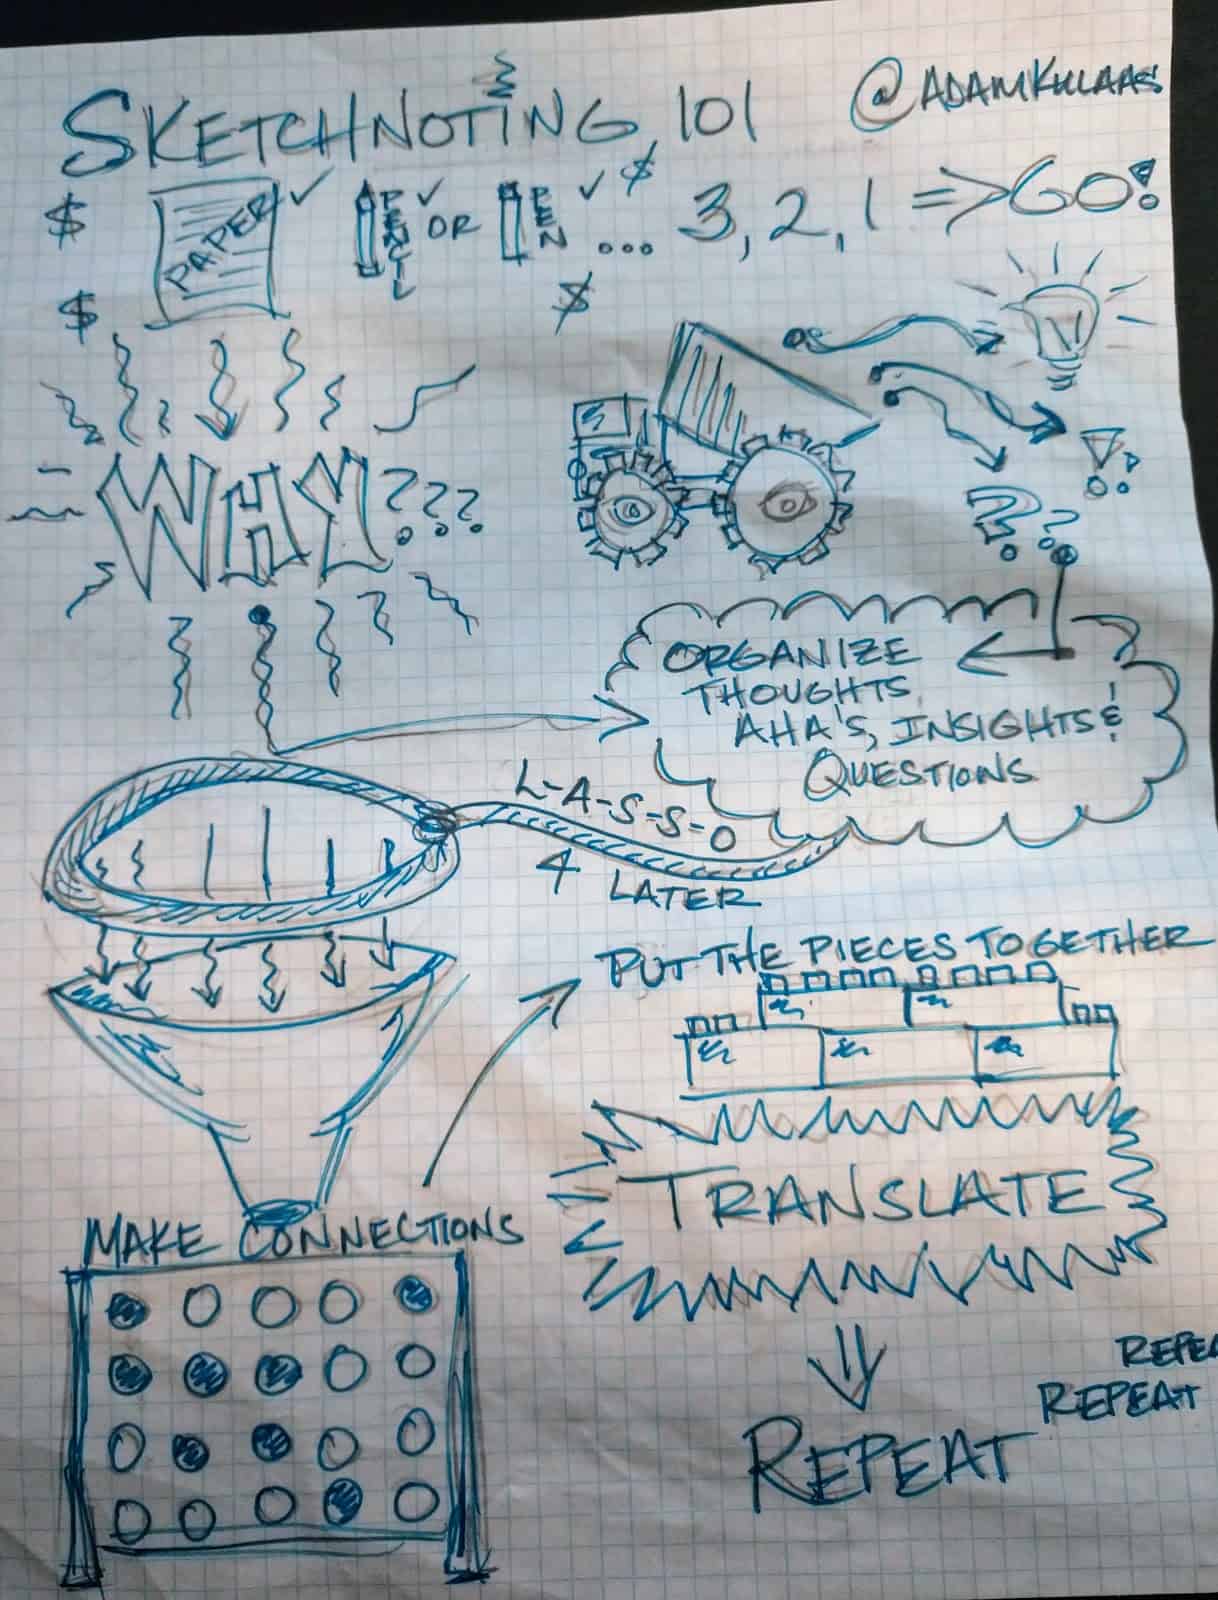 SKETCHNOTING 101
@ADAMKHLAAS
$ PAPER ✓ PENCIL ✓ OR PEN ✓ $ ... 3, 2, 1 => GO!
$ $
WHY????
!
??
ORGANIZE
THOUGHTS,
AHA'S, INSIGHTS &
QUESTIONS
L-A-S-S-O
4
LATER
PUT THE PIECES TOGETHER
MAKE CONNECTIONS
TRANSLATE
REPEAT
REPEAT